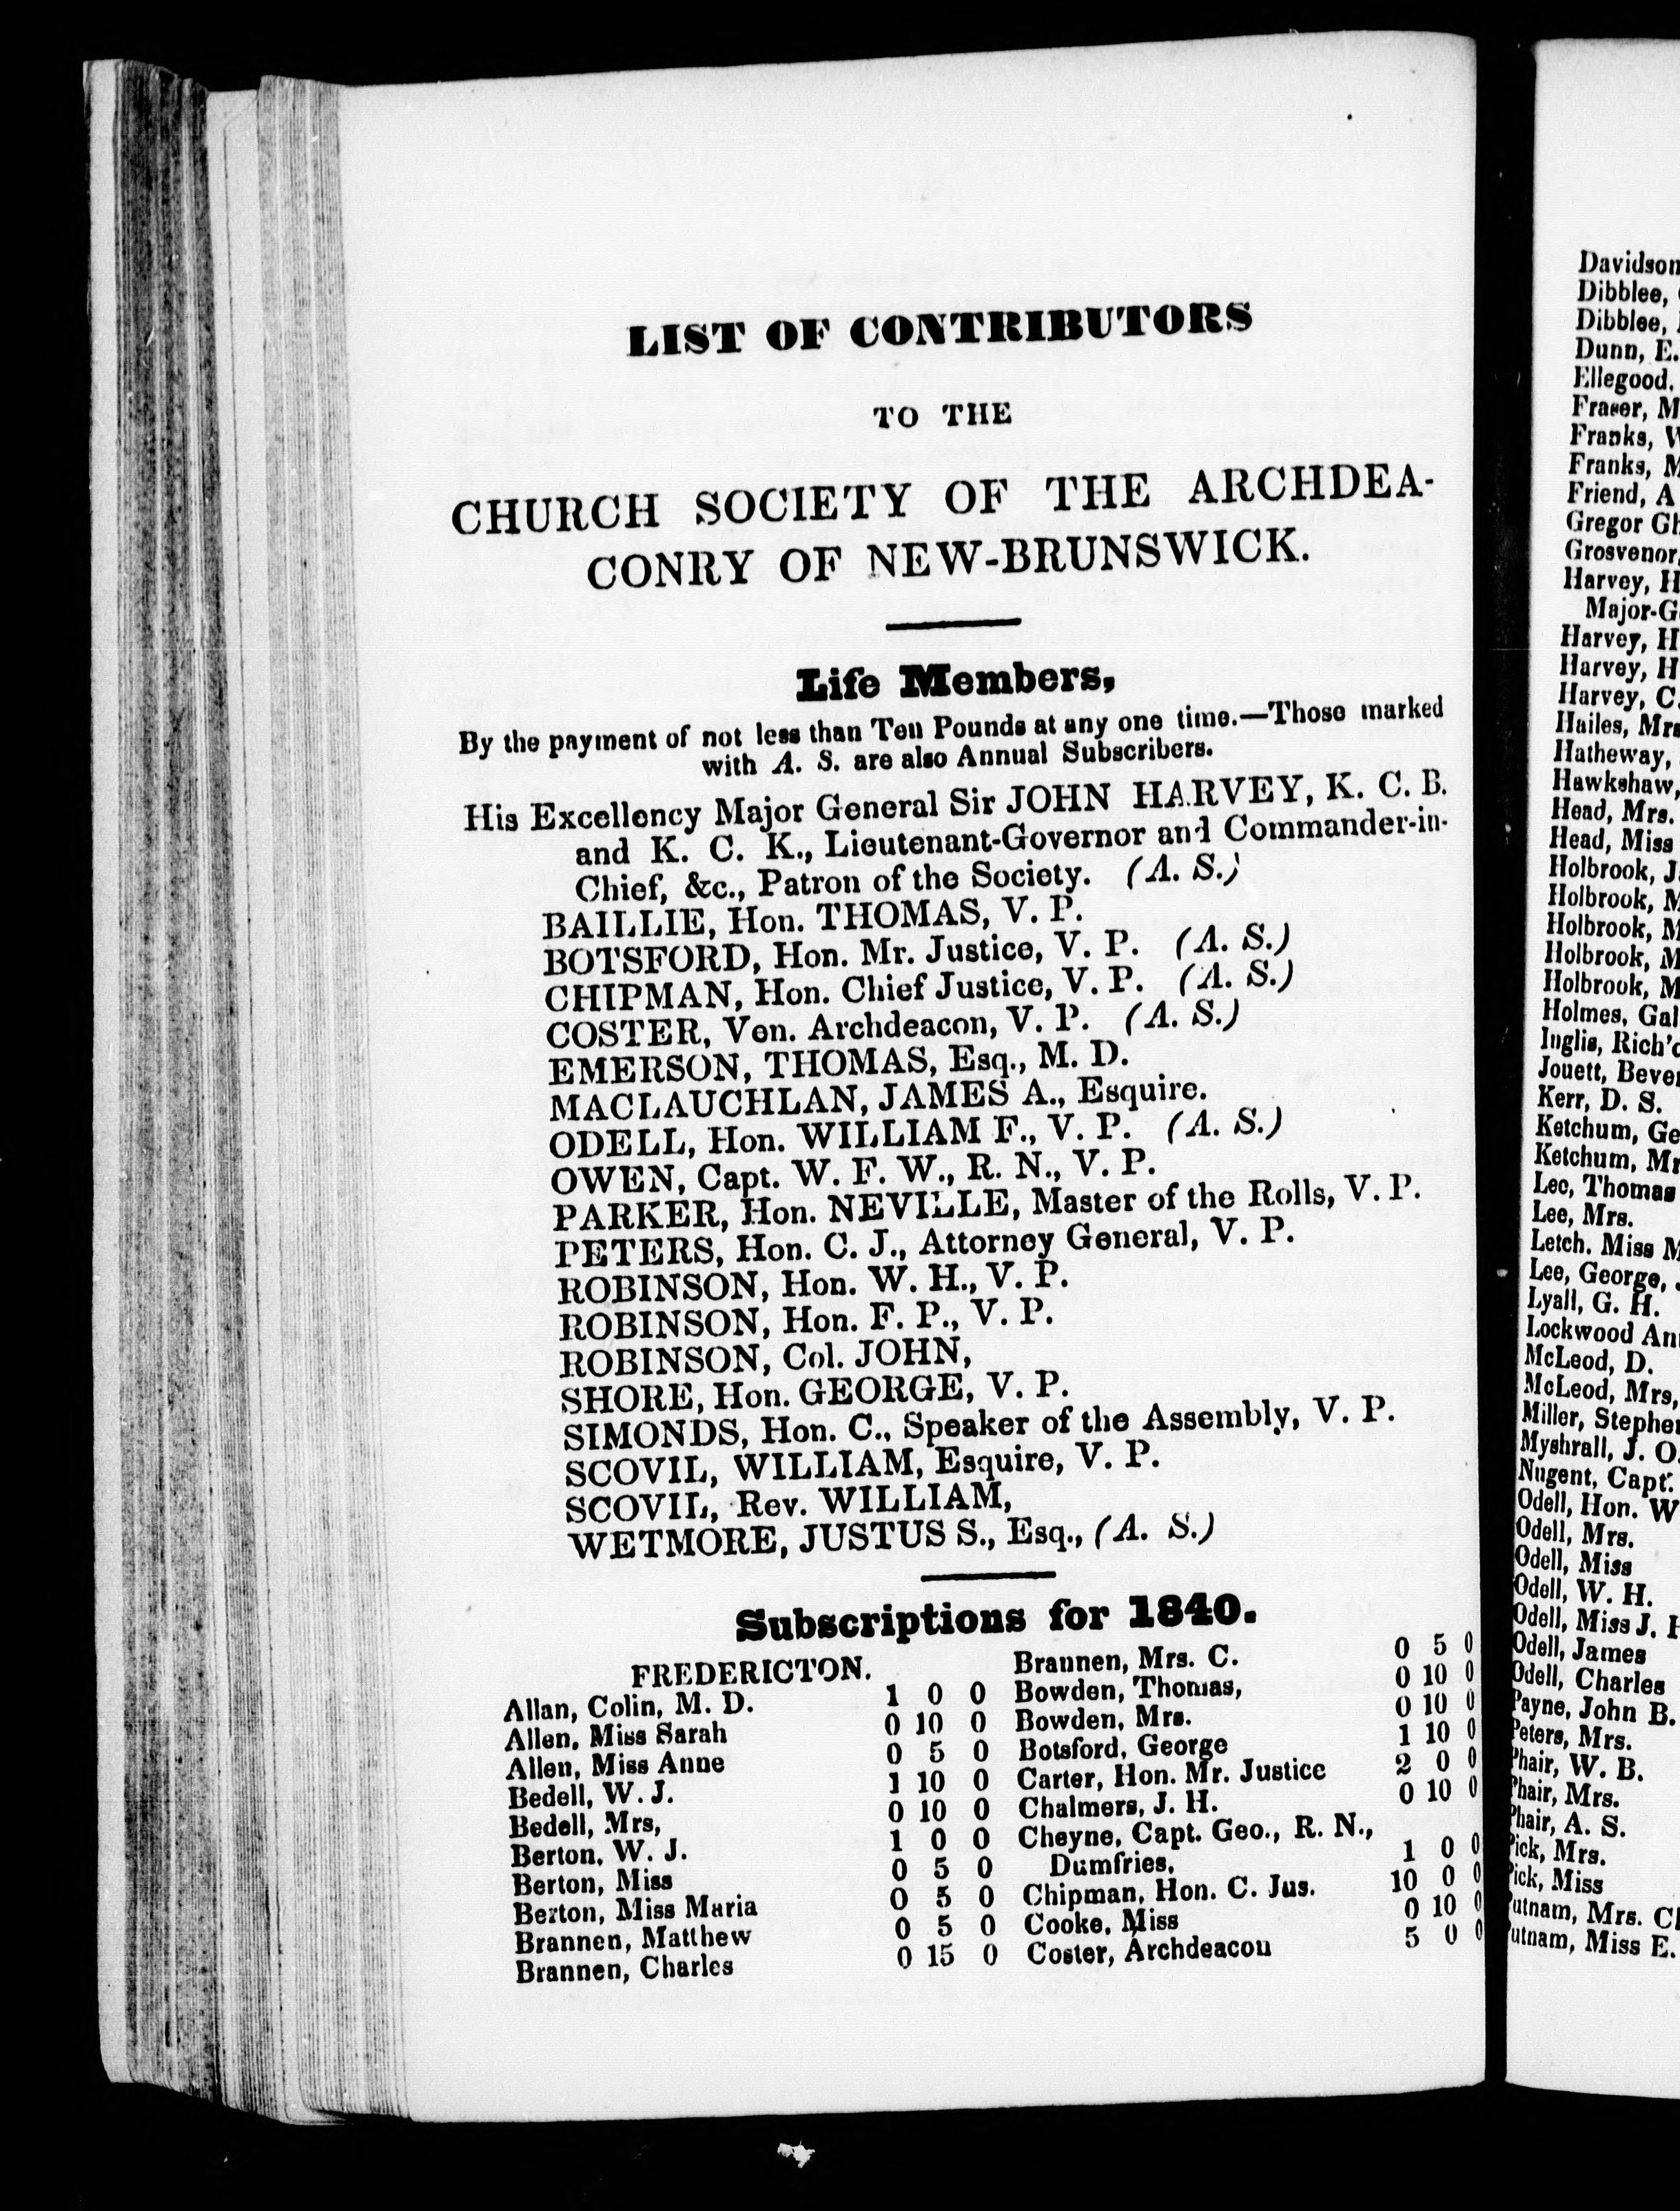 LIST OF CONTRIBUTORS
TO THE
CHURCH SOCIETY OF THE ARCHDEA-
CONRY OF NEW-BRUNSWICK.
Life Members,
By the payment of not less than Ten Pounds at any one time.—Those marked
with A. S. are also Annual Subscribers.
His Excellency Major General Sir JOHN HARVEY, K. C. B.
and K. C. K., Lieutenant-Governor and Commander-in-
Chief, &c., Patron of the Society. (A. S.)
BAILLIE, Hon. THOMAS, V. P.
BOTSFORD, Hon. Mr. Justice, V. P. (A. S.)
CHIPMAN, Hon. Chief Justice, V. P. (A. S.)
COSTER, Ven. Archdeacon, V. P. (A. S.)
EMERSON, THOMAS, Esq., M. D.
MACLAUCHLAN, JAMES A., Esquire.
ODELL, Hon. WILLIAM F., V. P. (A. S.)
OWEN, Capt. W. F. W., R. N., V. P.
PARKER, Hon. NEVILLE, Master of the Rolls, V. P.
PETERS, Hon. C. J., Attorney General, V. P.
ROBINSON, Hon. W. H., V. P.
ROBINSON, Hon. F. P., V. P.
ROBINSON, Col. JOHN,
SHORE, Hon. GEORGE, V. P.
SIMONDS, Hon. C., Speaker of the Assembly, V. P.
SCOVIL, WILLIAM, Esquire, V. P.
SCOVIL, Rev. WILLIAM,
WETMORE, JUSTUS S., Esq., (A. S.)
Subscriptions for 1840.
FREDERICTON.
Allan, Colin, M. D. 1 0 0
Allen, Miss Sarah 0 10 0
Allen, Miss Anne 0 5 0
Bedell, W. J. 1 10 0
Bedell, Mrs, 0 10 0
Berton, W. J. 1 0 0
Berton, Miss 0 5 0
Berton, Miss Maria 0 5 0
Brannen, Matthew 0 5 0
Brannen, Charles 0 15 0
Brannen, Mrs. C. 0 5 0
Bowden, Thomas, 0 10 0
Bowden, Mrs. 0 10 0
Botsford, George 1 10 0
Carter, Hon. Mr. Justice 2 0 0
Chalmers, J. H. 0 10 0
Cheyne, Capt. Geo., R. N.,
Dumfries, 1 0 0
Chipman, Hon. C. Jus. 10 0 0
Cooke, Miss 0 10 0
Coster, Archdeacon 5 0 0
Davidson
Dibblee,
Dibblee,
Dunn, E.
Ellegood.
Fraser, M
Franks, W
Franks, M
Friend, A
Gregor Gh
Grosvenor,
Harvey, H
Major-G
Harvey, H
Harvey, H
Harvey, C.
Hailes, Mrs
Hatheway,
Hawkshaw,
Head, Mrs.
Head, Miss
Holbrook, J.
Holbrook, M
Holbrook, M
Holbrook, M
Holbrook, M
Holmes, Gal
Inglis, Rich'd
Jouett, Bever
Kerr, D. S.
Ketchum, Ge
Ketchum, Mr
Lee, Thomas
Lee, Mrs.
Letch. Miss M
Lee, George,
Lyall, G. H.
Lockwood Ann
McLeod, D.
McLeod, Mrs,
Miller, Stephen
Myshrall, J. O.
Nugent, Capt.
Odell, Hon. W
Odell, Mrs.
Odell, Miss
Odell, W. H.
Odell, Miss J. H
Odell, James
Odell, Charles
Payne, John B.
Peters, Mrs.
Phair, W. B.
Phair, Mrs.
Phair, A. S.
Pick, Mrs.
Pick, Miss
utnam, Mrs. Ch
utnam, Miss E.